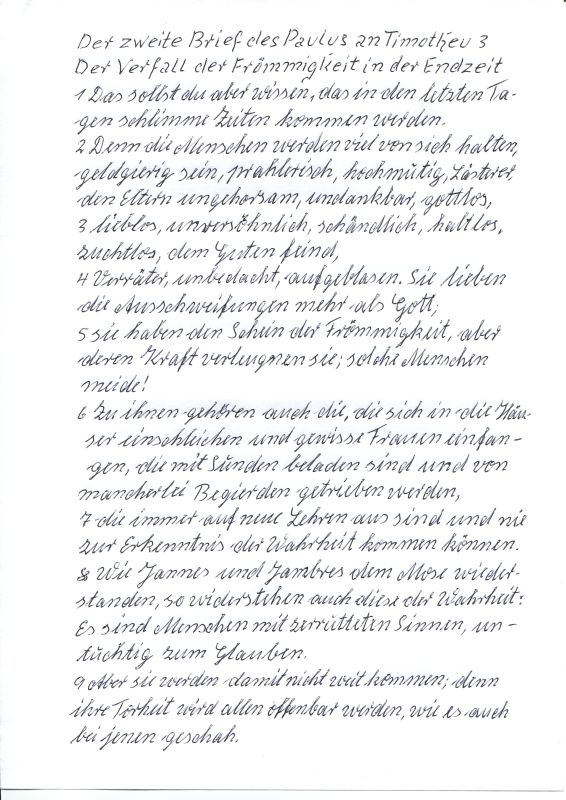 Der zweite Brief des Paulus an Timotheu 3
Der Verfall der Frömmigkeit in der Endzeit
1 Das sollst du aber wissen, das in den letzten Ta-
gen schlimme Zeiten kommen werden.
2 Denn die Menschen werden viel von sich halten,
geldgierig sein, prahlerisch, hochmütig, Lästerer,
den Eltern ungehorsam, undankbar, gottlos,
3 lieblos, unversöhnlich, schändlich, haltlos,
zuchtlos, dem Guten feind,
4 Verräter, unbedacht, aufgeblasen. Sie lieben
die Ausschweifungen mehr als Gott;
5 sie haben den Schein der Frömmigkeit, aber
deren Kraft verleugnen sie; solche Menschen
meide!
6 Zu ihnen gehören auch die, die sich in die Häu-
ser einschleichen und gewisse Frauen einfan-
gen, die mit Sünden beladen sind und von
mancherlei Begierden getrieben werden,
7 die immer auf neue Lehren aus sind und nie
zur Erkenntnis der Wahrheit kommen können.
8 Wie Jannes und Jambres dem Mose wieder-
standen, so widerstehen auch diese der Wahrheit:
Es sind Menschen mit zerrütteten Sinnen, un-
tüchtig zum Glauben.
9 Aber sie werden damit nicht weit kommen; denn
ihre Torheit wird allen offenbar werden, wie es auch
bei jenen geschah.